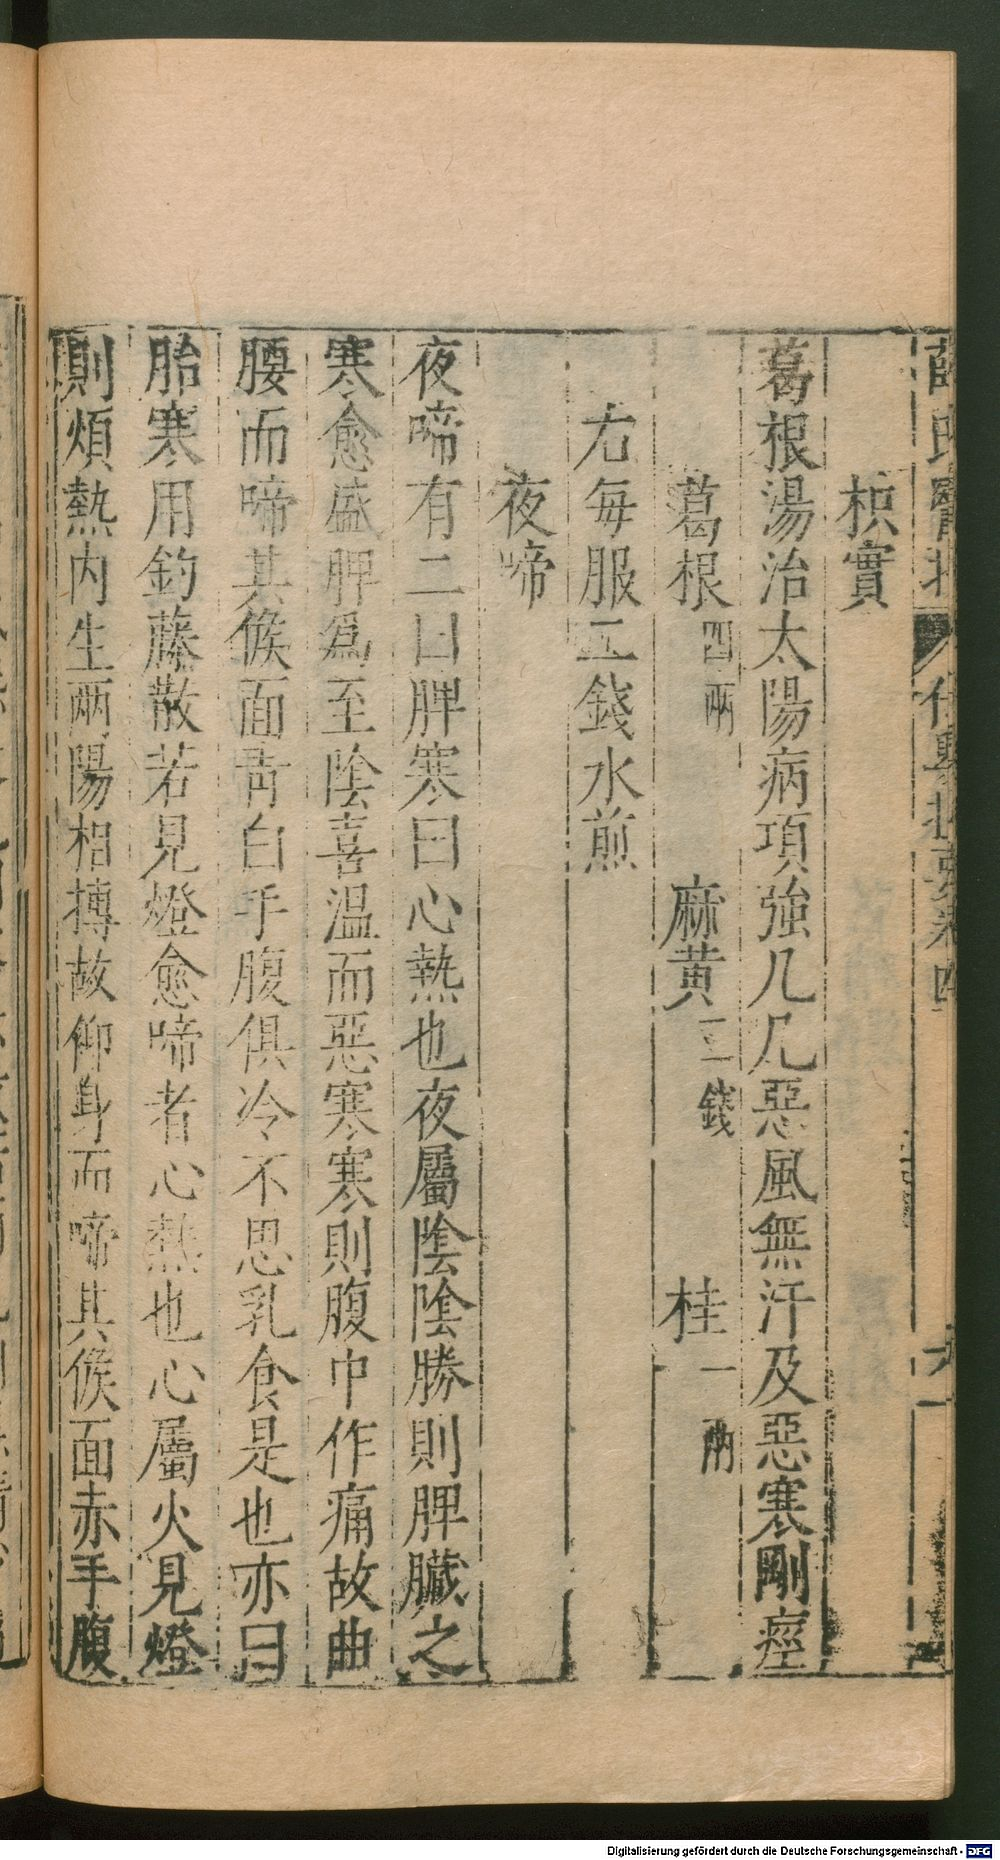 枳實
葛根湯治太陽病項強几几惡風無汗及惡寒剛痙
葛根四兩 麻黃三錢 桂一兩
右每服三錢水煎
夜啼
夜啼有二曰脾寒曰心熱也夜屬陰陰勝則脾臟之
寒愈盛脾爲至陰喜溫而惡寒寒則腹中作痛故曲
腰而啼其候面青白手腹俱冷不思乳食是也亦曰
胎寒用釣藤散若見燈愈啼者心熱也心屬火見燈
則煩熱内生兩陽相搏故仰身而啼其候面赤手腹
Digitalisierung gefördert durch die Deutsche Forschungsgemeinschaft - DFG